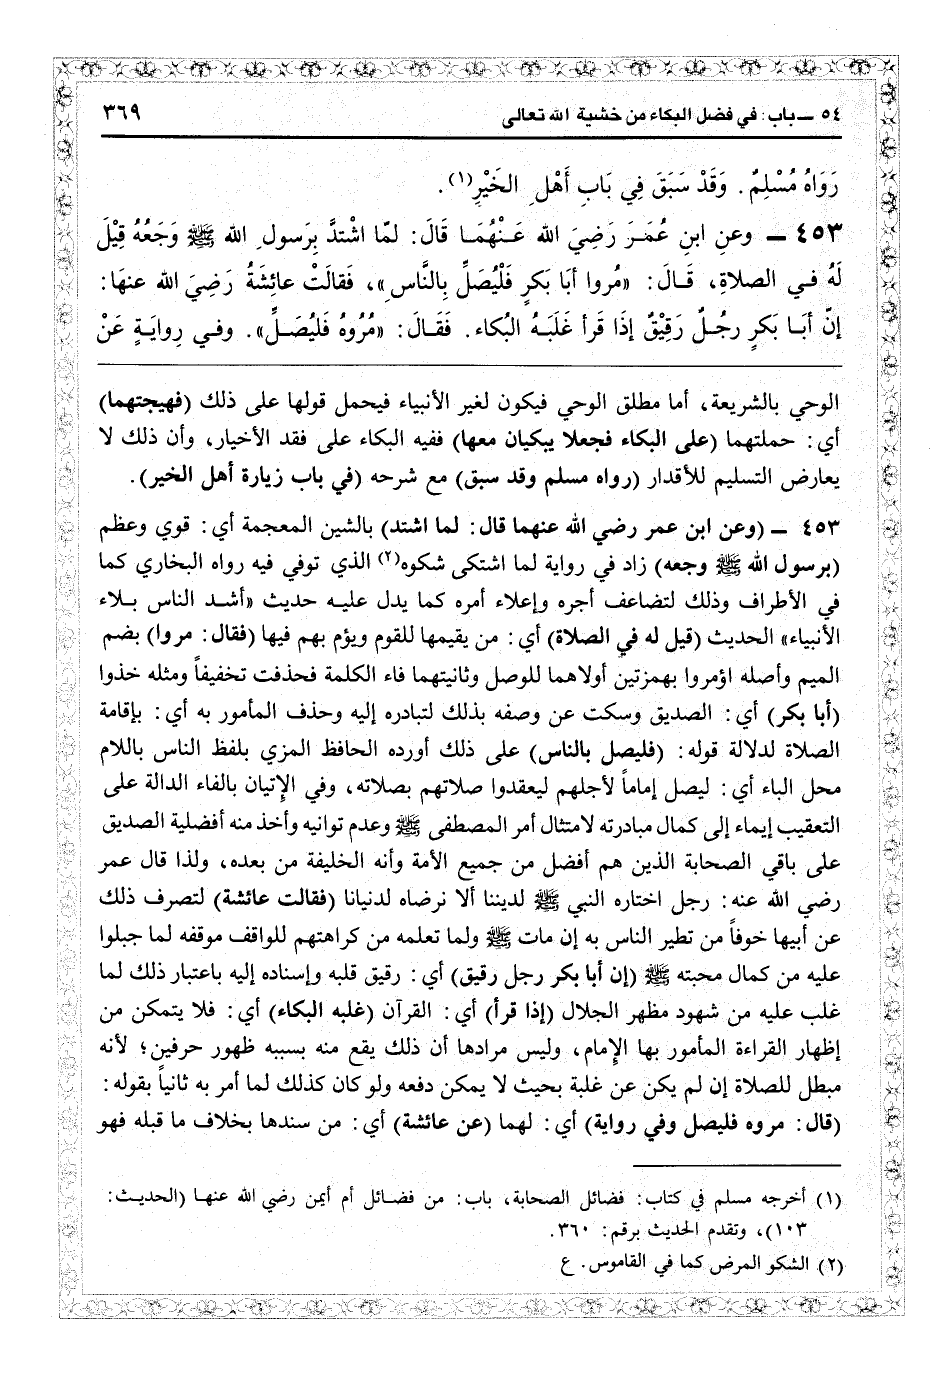 ٥٤ ــ باب: في فضل البكاء من خشية الله تعالى
٣٦٩
رَوَاهُ مُسْلِمٌ. وَقَدْ سَبَقَ فِي بَابِ أَهْلِ الخَيْرِ(١).
٤٥٣ ــ وعنِ ابنِ عُمَـرَ رَضِيَ الله عَـنْهُمَـا قَالَ: لمّا اشْتدَّ بِرَسولِ الله ﷺ وَجَعُهُ قِيْلَ
لَهُ فـي الصلاةِ، قَـالَ: «مُروا أبَا بَكرٍ فَلْيُصَلِّ بِالنَّاسِ»، فَقالَتْ عائِشَةُ رَضِيَ الله عنهَا:
إنّ أبَـا بَكرٍ رجُلٌ رَقِيْقٌ إذَا قَرأَ غَلَبَـهُ البُكاء. فَقَـالَ: «مُرُوهُ فَليُصَـلِّ». وفـي رِوايَـةٍ عَنْ
الوحي بالشريعة، أما مطلق الوحي فيكون لغير الأنبياء فيحمل قولها على ذلك (فهيجتهما)
أي: حملتهما (على البكاء فجعلا يبكيان معها) ففيه البكاء على فقد الأخيار، وأن ذلك لا
يعارض التسليم للأقدار (رواه مسلم وقد سبق) مع شرحه (في باب زيارة أهل الخير).
٤٥٣ ــ (وعن ابن عمر رضي الله عنهما قال: لما اشتد) بالشين المعجمة أي: قوي وعظم
(برسول الله ﷺ وجعه) زاد في رواية لما اشتكى شكوه(٢) الذي توفي فيه رواه البخاري كما
في الأطراف وذلك لتضاعف أجره وإعلاء أمره كما يدل عليـه حديث «أشـد الناس بـلاء
الأنبياء» الحديث (قيل له في الصلاة) أي: من يقيمها للقوم ويؤم بهم فيها (فقال: مروا) بضم
الميم وأصله اؤمروا بهمزتين أولاهما للوصل وثانيتهما فاء الكلمة فحذفت تخفيفاً ومثله خذوا
(أبا بكر) أي: الصديق وسكت عن وصفه بذلك لتبادره إليه وحذف المأمور به أي: بإقامة
الصلاة لدلالة قوله: (فليصل بالناس) على ذلك أورده الحافظ المزي بلفظ الناس باللام
محل الباء أي: ليصل إماماً لأجلهم ليعقدوا صلاتهم بصلاته، وفي الإتيان بالفاء الدالة على
التعقيب إيماء إلى كمال مبادرته لامتثال أمر المصطفى ﷺ وعدم توانيه وأخذ منه أفضلية الصديق
على باقي الصحابة الذين هم أفضل من جميع الأمة وأنه الخليفة من بعده، ولذا قال عمر
رضي الله عنه: رجل اختاره النبي ﷺ لديننا ألا نرضاه لدنيانا (فقالت عائشة) لتصرف ذلك
عن أبيها خوفاً من تطير الناس به إن مات ﷺ ولما تعلمه من كراهتهم للواقف موقفه لما جبلوا
عليه من كمال محبته ﷺ (إن أبا بكر رجل رقيق) أي: رقيق قلبه وإسناده إليه باعتبار ذلك لما
غلب عليه من شهود مظهر الجلال (إذا قرأ) أي: القرآن (غلبه البكاء) أي: فلا يتمكن من
إظهار القراءة المأمور بها الإمام، وليس مرادها أن ذلك يقع منه بسببه ظهور حرفين؛ لأنه
مبطل للصلاة إن لم يكن عن غلبة بحيث لا يمكن دفعه ولو كان كذلك لما أمر به ثانياً بقوله:
(قال: مروه فليصل وفي رواية) أي: لهما (عن عائشة) أي: من سندها بخلاف ما قبله فهو
(١) أخرجه مسلم في كتاب: فضائل الصحابة، باب: من فضـائل أم أيمن رضي الله عنهـا (الحديـث:
١٠٣)، وتقدم الحديث برقم: ٣٦٠.
(٢) الشكو المرض كما في القاموس. ع